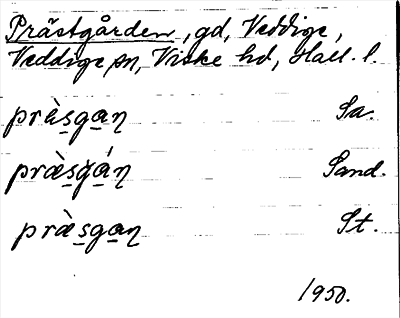 Prästgården, gd, Veddige,
Veddige sn, Viske hd, Hall. l.
præ̀sgaɳ Sa.
præ̀sg̀áɳ Sand.
præ̀sgaɳ St.
1950.